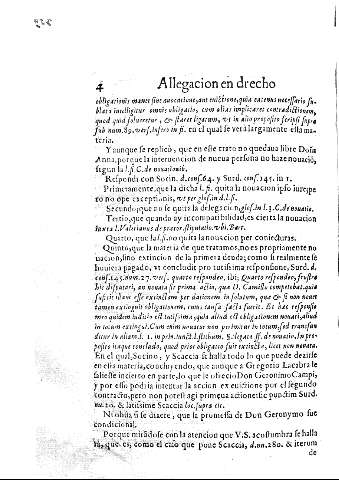 4 Allegacion en drecho
obligationis manet sine auocatione, aut euictione, quia eatenus necessario su-
blata intelligitur omnis obligatio, cum alias implicares contradictionem,
quod quid solueretur, & staret ligatum, vt in alio proposito scripsi supra
sub num. 89. vers. Infero in fi. en el qual se verà largamente esta ma-
teria.
Y aunque se replicò, que en este trato no quedaua libre Doña
Anna, porque la interuencion de nueua persona no haze nouaciõ,
segun la l. fi. C. de nouationib.
Responda con Socin. d. cons. 64. y Surd. cons. 145. in 1.
Primeramente, que la dicha l. fi. quita la nouacion ipso iure pe-
ro no ope exceptionis, vt per glos. in d. l. fi.
Secundo, que no se quita la delegacion, glos. in l. 3. C. de nouatio.
Tertio, que quando ay incompatibilidad, es cierta la nouacion
iuxta l. Valerianus de prætor. stipulatio. vbi Bart.
Quarto, que la l. fi. no quita la nouacion per coniecturas.
Quinto, que la materia de que tratamos, no es propriamente no
uacion, sino extincion de la primera deuda; como si realmente se
huuiera pagado, vt concludit pro tutissima responsione, Surd. d.
cons. 145. num. 27. vers. quarto respondeo, ibi; Quarto respondeo, frustra
hic disputari, an nouata sit prima actio, quæ D. Camillo competebat, quia
sufficit illam esse extinctam per dationem in solutum, quæ & si non noua
tamen extinguit obligationem, cum causa facta fuerit. Et hæc responsio
meo quidem iudicio est tutissima quia aliud est obligationem nouari, aliud
in totum extingui. Cum enim nouatur non perimitur in totum, sed transfun
ditur in aliam l. 1. in prin. iunct. l. si filium. §. elegare ff. de nouatio. In pro-
posito itaque concludo, quod prior obligatio fuit extincta, licet non nouata.
En el qual, Socino, y Scaccia se halla todo lo que puede dezirse
en esta materia, concluyendo, que aunque a Gregorio Lacabra le
saliesse incierto en parte, lo que le ofreciò Don Geronimo Campi,
y por esso podria intentar la accion ex euictione por el segundo
contracto, pero non potest agi actione prima specifice punctim Surd.
nu. 20. & latissime Scaccia loc. supra cit.
Ni obsta, û se dixere, que la promessa de Don Geronymo fue
condicional.
Porque mirãdose con la atencion que V.S. acostumbra se halla
rà, que es, como el caso que pone Scaccia, d. nu. 280. & iterum
de